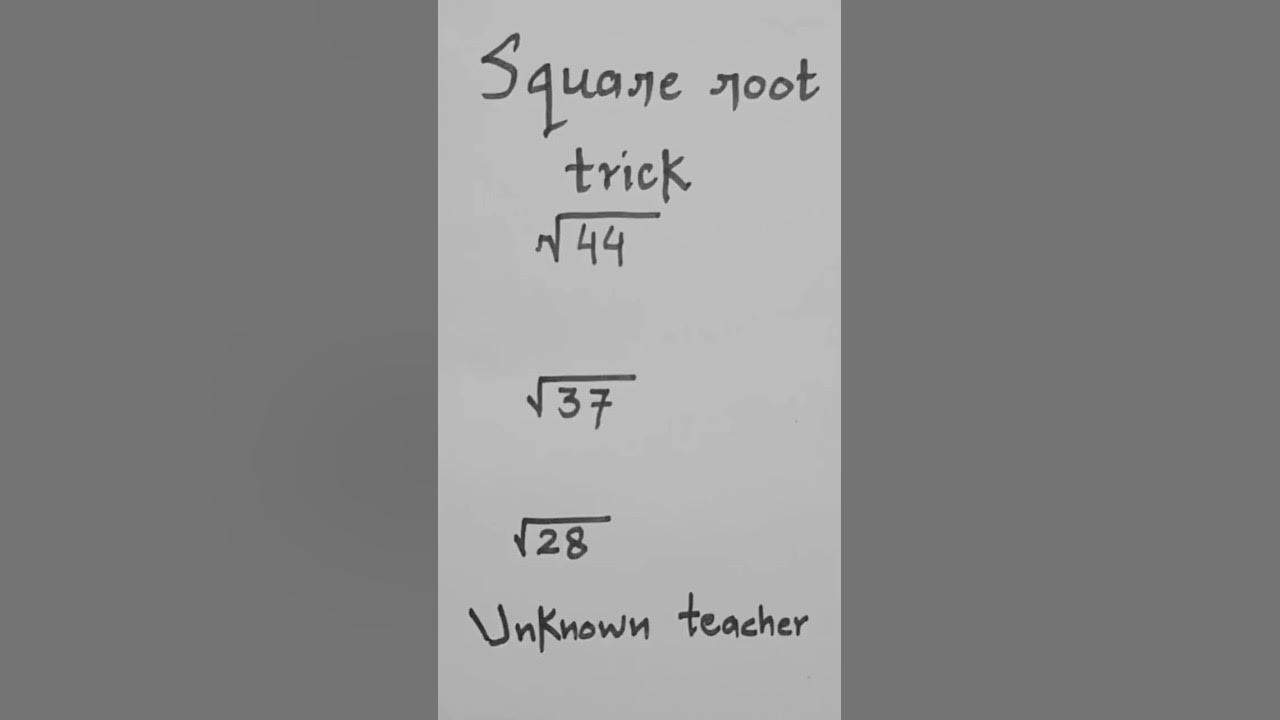 Square root
trick
√44
√37
√28
Unknown teacher